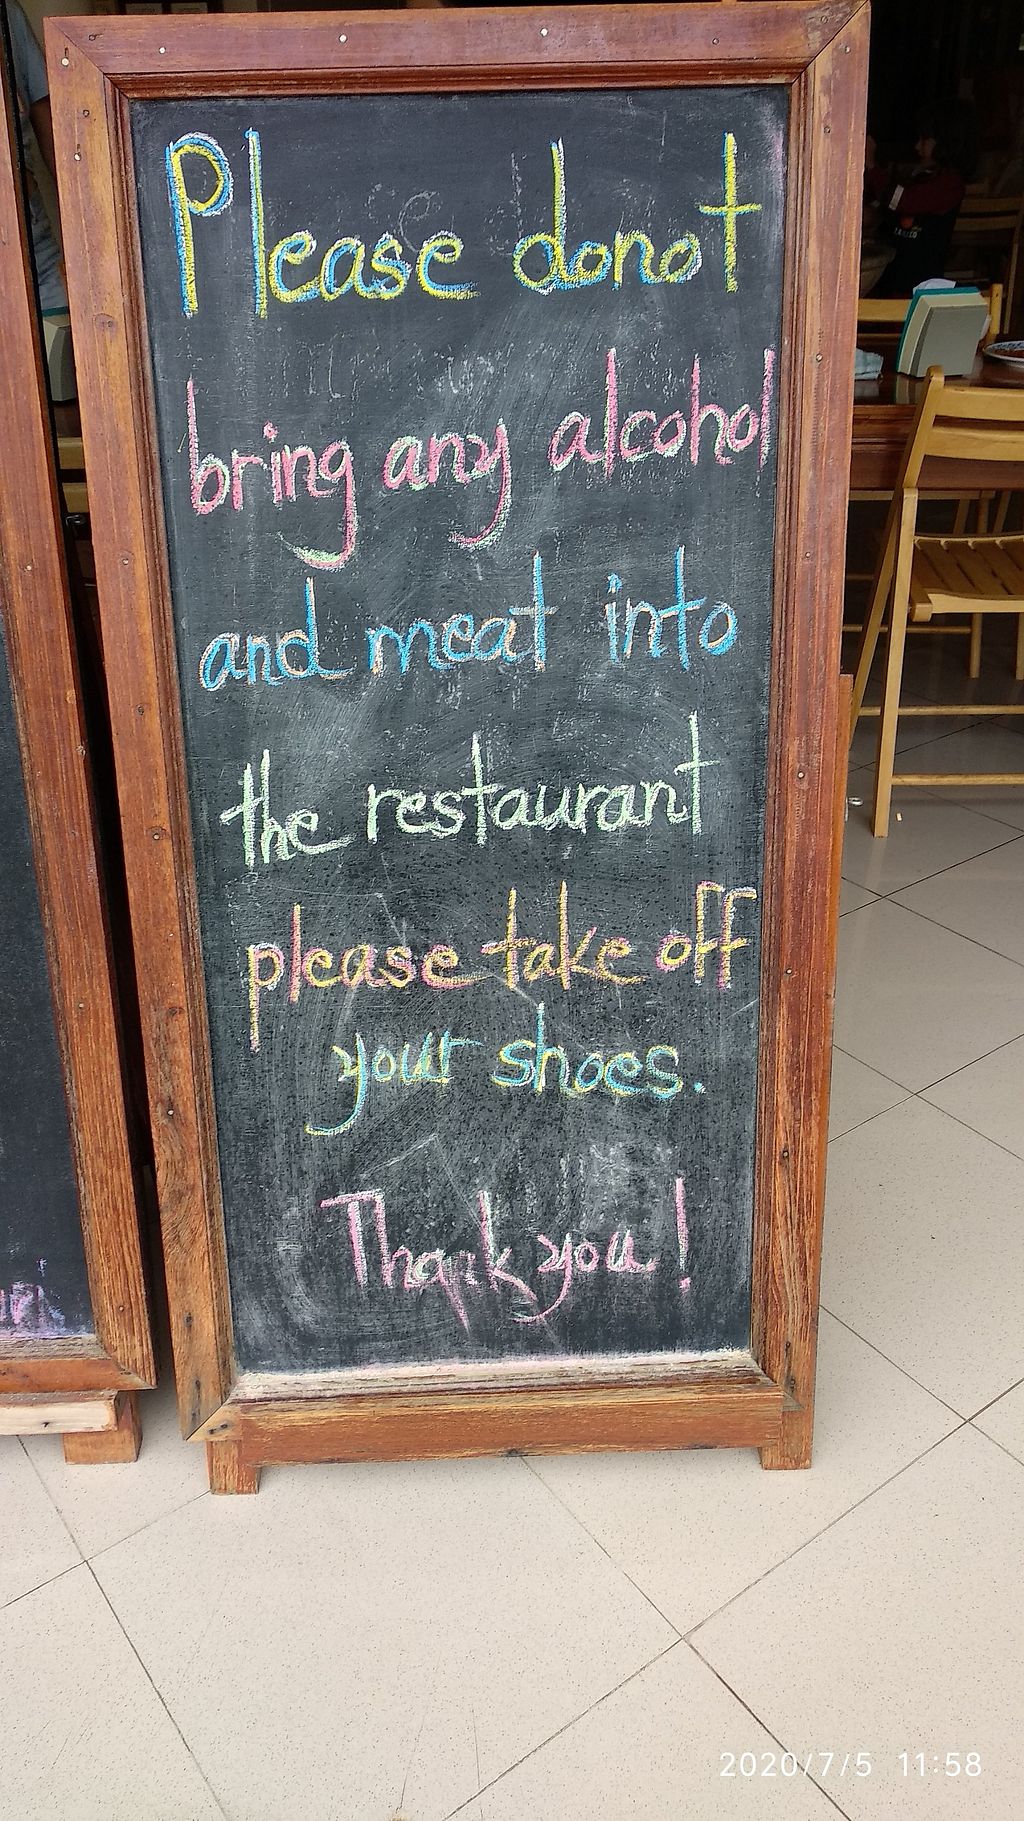 Please donot
bring any alcohol
and meat into
the restaurant
please take off
your shoes.
Thank you!
2020/7/5 11:58